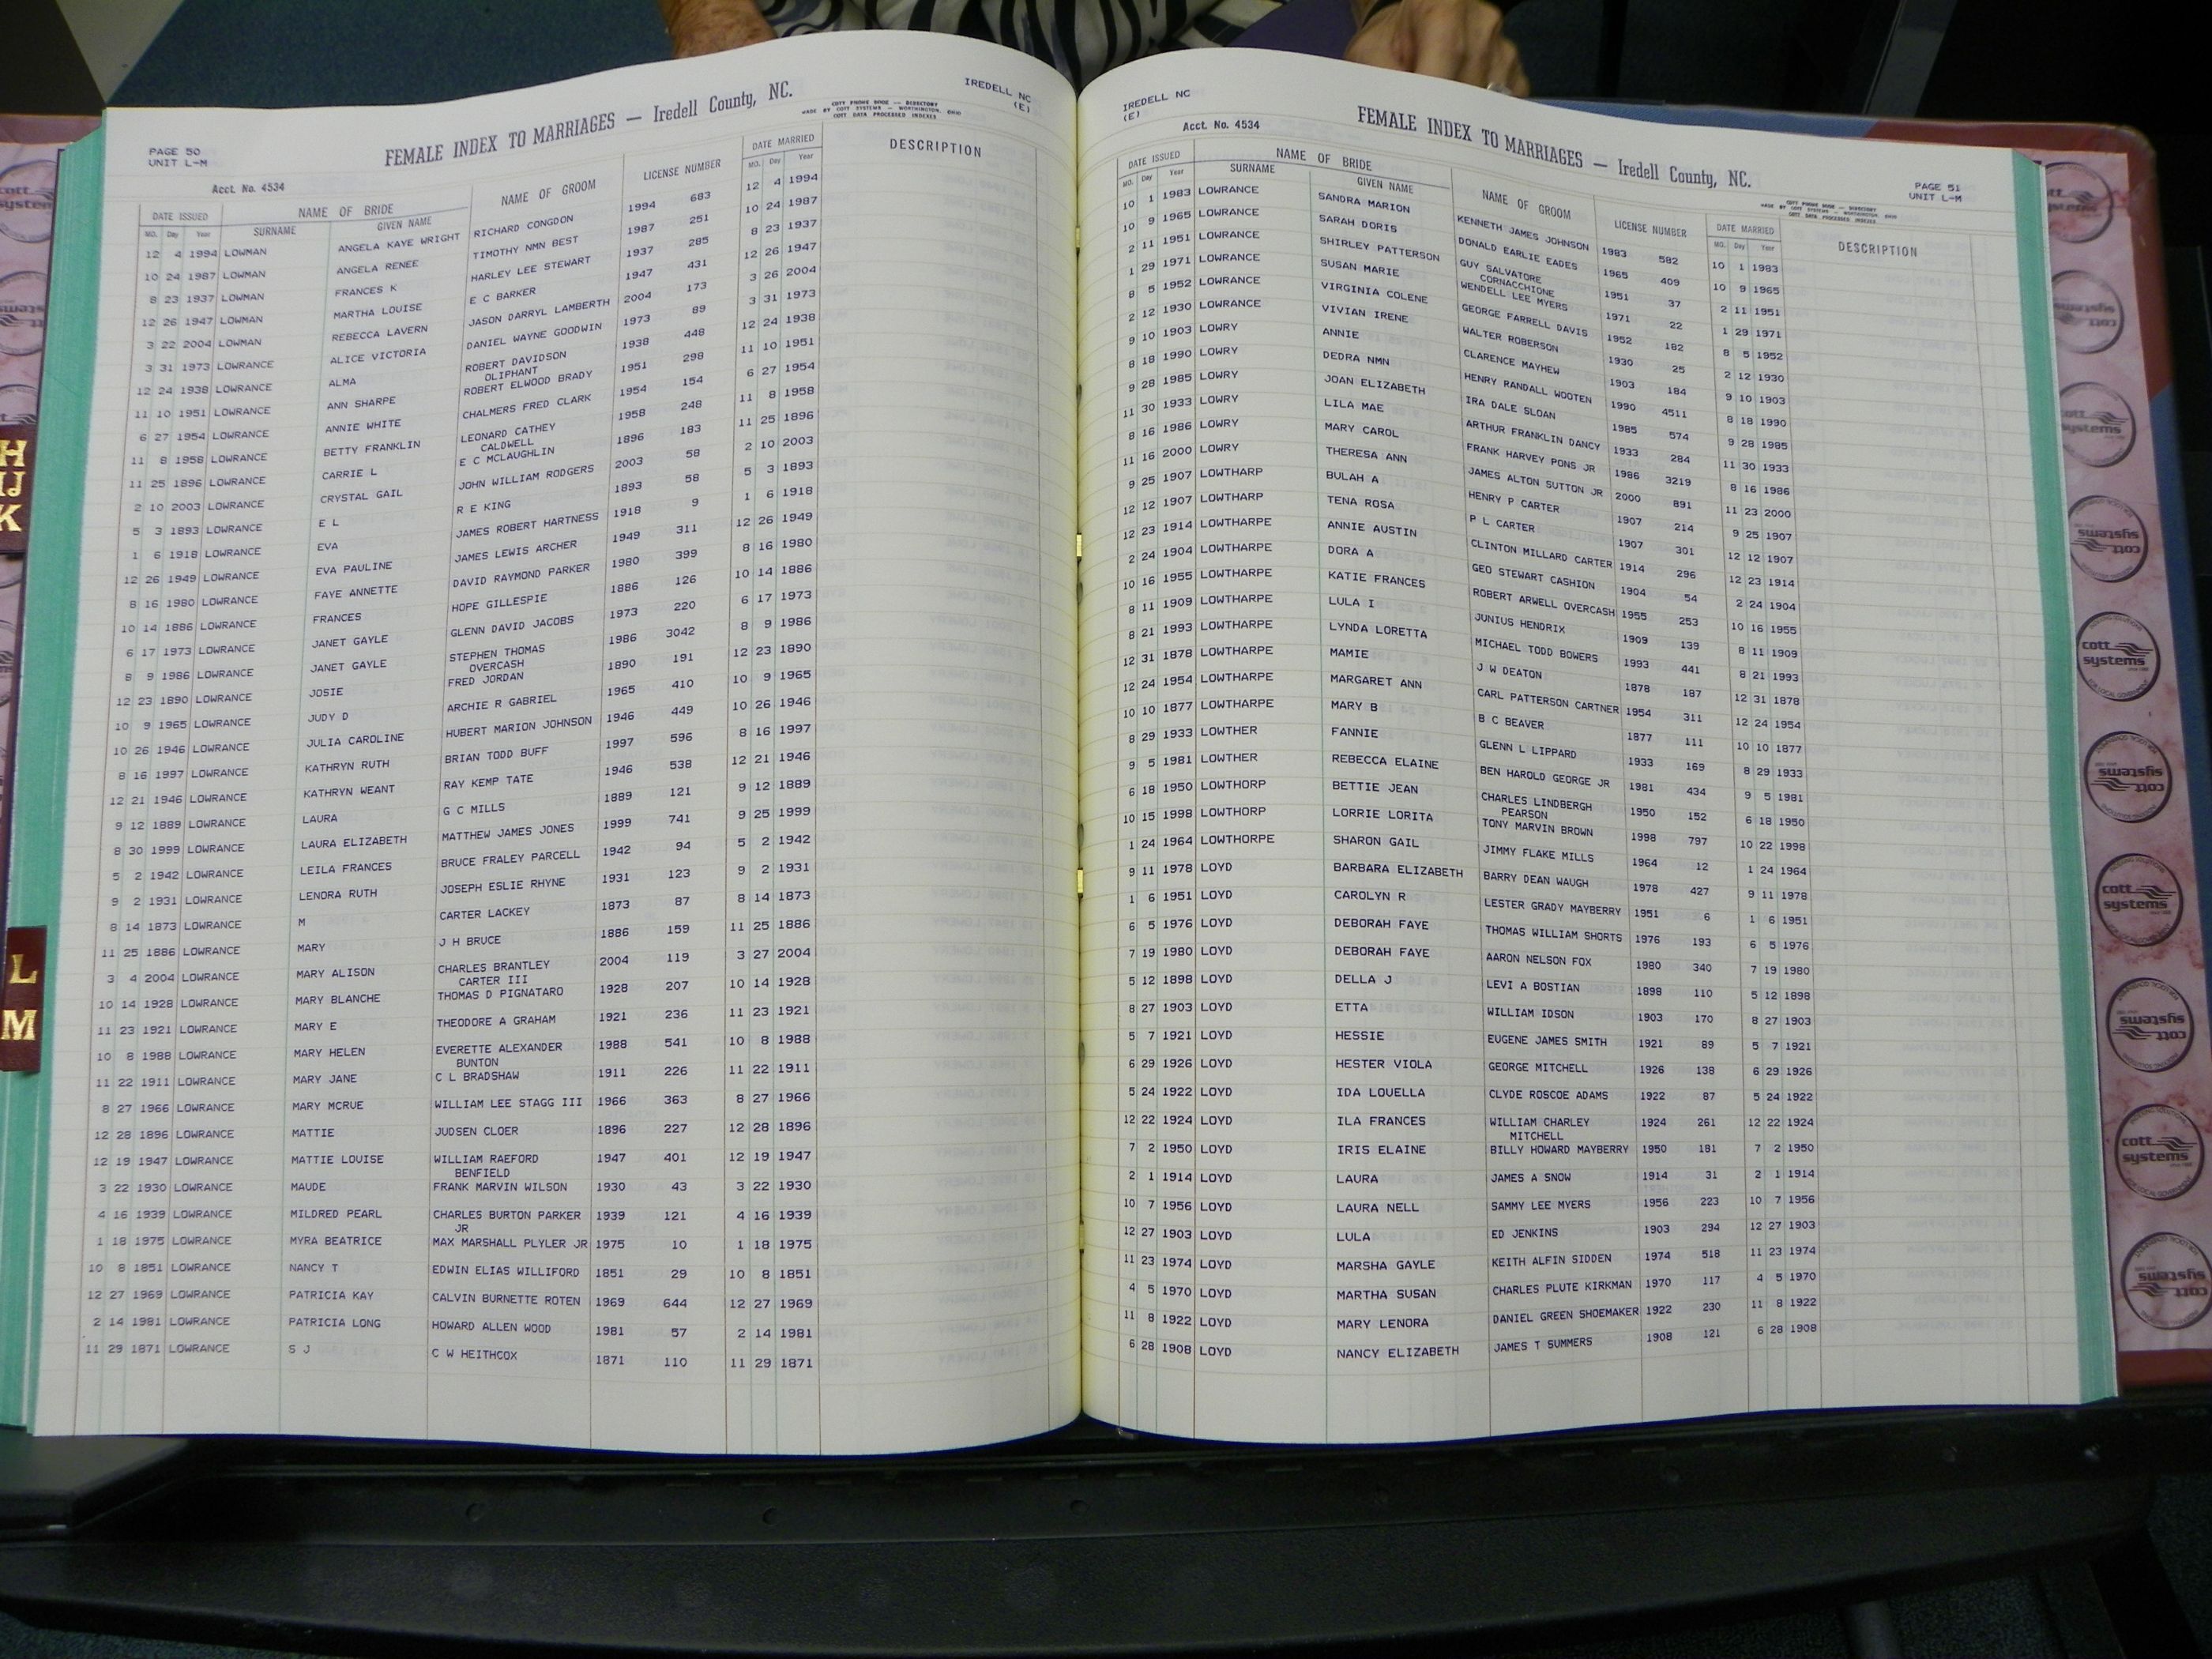 PAGE 50
UNIT L-M
FEMALE INDEX TO MARRIAGES — Iredell County, NC.
IREDELL NC
(E)
COTT PHONE BOOK — DIRECTORY
MADE BY COTT SYSTEMS — WORTHINGTON, OHIO
COTT DATA PROCESSED INDEXES
Acct. No. 4534
DATE ISSUED NAME OF BRIDE NAME OF GROOM LICENSE NUMBER DATE MARRIED DESCRIPTION
MO. Day Year SURNAME GIVEN NAME MO. Day Year
12 4 1994 LOWMAN ANGELA KAYE WRIGHT RICHARD CONGDON 1994 683 12 4 1994
10 24 1987 LOWMAN ANGELA RENEE TIMOTHY NMN BEST 1987 251 10 24 1987
8 23 1937 LOWMAN FRANCES K HARLEY LEE STEWART 1937 285 8 23 1937
12 26 1947 LOWMAN MARTHA LOUISE E C BARKER 1947 431 12 26 1947
3 22 2004 LOWMAN REBECCA LAVERN JASON DARRYL LAMBERTH 2004 173 3 26 2004
3 31 1973 LOWRANCE ALICE VICTORIA DANIEL WAYNE GOODWIN 1973 89 3 31 1973
12 24 1938 LOWRANCE ALMA ROBERT DAVIDSON 1938 448 12 24 1938
OLIPHANT
11 10 1951 LOWRANCE ANN SHARPE ROBERT ELWOOD BRADY 1951 298 11 10 1951
6 27 1954 LOWRANCE ANNIE WHITE CHALMERS FRED CLARK 1954 154 6 27 1954
11 8 1958 LOWRANCE BETTY FRANKLIN LEONARD CATHEY 1958 248 11 8 1958
CALDWELL
11 25 1896 LOWRANCE CARRIE L E C MCLAUGHLIN 1896 183 11 25 1896
2 10 2003 LOWRANCE CRYSTAL GAIL JOHN WILLIAM RODGERS 2003 58 2 10 2003
5 3 1893 LOWRANCE E L R E KING 1893 58 5 3 1893
1 6 1918 LOWRANCE EVA JAMES ROBERT HARTNESS 1918 9 1 6 1918
12 26 1949 LOWRANCE EVA PAULINE JAMES LEWIS ARCHER 1949 311 12 26 1949
8 16 1980 LOWRANCE FAYE ANNETTE DAVID RAYMOND PARKER 1980 399 8 16 1980
10 14 1886 LOWRANCE FRANCES HOPE GILLESPIE 1886 126 10 14 1886
6 17 1973 LOWRANCE JANET GAYLE GLENN DAVID JACOBS 1973 220 6 17 1973
8 9 1986 LOWRANCE JANET GAYLE STEPHEN THOMAS 1986 3042 8 9 1986
OVERCASH
12 23 1890 LOWRANCE JOSIE FRED JORDAN 1890 191 12 23 1890
10 9 1965 LOWRANCE JUDY D ARCHIE R GABRIEL 1965 410 10 9 1965
10 26 1946 LOWRANCE JULIA CAROLINE HUBERT MARION JOHNSON 1946 449 10 26 1946
8 16 1997 LOWRANCE KATHRYN RUTH BRIAN TODD BUFF 1997 596 8 16 1997
12 21 1946 LOWRANCE KATHRYN WEANT RAY KEMP TATE 1946 538 12 21 1946
9 12 1889 LOWRANCE LAURA G C MILLS 1889 121 9 12 1889
8 30 1999 LOWRANCE LAURA ELIZABETH MATTHEW JAMES JONES 1999 741 9 25 1999
5 2 1942 LOWRANCE LEILA FRANCES BRUCE FRALEY PARCELL 1942 94 5 2 1942
9 2 1931 LOWRANCE LENORA RUTH JOSEPH ESLIE RHYNE 1931 123 9 2 1931
8 14 1873 LOWRANCE M CARTER LACKEY 1873 87 8 14 1873
11 25 1886 LOWRANCE MARY J H BRUCE 1886 159 11 25 1886
3 4 2004 LOWRANCE MARY ALISON CHARLES BRANTLEY 2004 119 3 27 2004
CARTER III
10 14 1928 LOWRANCE MARY BLANCHE THOMAS D PIGNATARO 1928 207 10 14 1928
11 23 1921 LOWRANCE MARY E THEODORE A GRAHAM 1921 236 11 23 1921
10 8 1988 LOWRANCE MARY HELEN EVERETTE ALEXANDER 1988 541 10 8 1988
BUNTON
11 22 1911 LOWRANCE MARY JANE C L BRADSHAW 1911 226 11 22 1911
8 27 1966 LOWRANCE MARY MCRUE WILLIAM LEE STAGG III 1966 363 8 27 1966
12 28 1896 LOWRANCE MATTIE JUDSEN CLOER 1896 227 12 28 1896
12 19 1947 LOWRANCE MATTIE LOUISE WILLIAM RAEFORD 1947 401 12 19 1947
BENFIELD
3 22 1930 LOWRANCE MAUDE FRANK MARVIN WILSON 1930 43 3 22 1930
4 16 1939 LOWRANCE MILDRED PEARL CHARLES BURTON PARKER 1939 121 4 16 1939
JR
1 18 1975 LOWRANCE MYRA BEATRICE MAX MARSHALL PLYLER JR 1975 10 1 18 1975
10 8 1851 LOWRANCE NANCY T EDWIN ELIAS WILLIFORD 1851 29 10 8 1851
12 27 1969 LOWRANCE PATRICIA KAY CALVIN BURNETTE ROTEN 1969 644 12 27 1969
2 14 1981 LOWRANCE PATRICIA LONG HOWARD ALLEN WOOD 1981 57 2 14 1981
11 29 1871 LOWRANCE S J C W HEITHCOX 1871 110 11 29 1871
IREDELL NC
(E)
Acct. No. 4534
FEMALE INDEX TO MARRIAGES — Iredell County, NC.
PAGE 51
UNIT L-M
COTT PHONE BOOK — DIRECTORY
MADE BY COTT SYSTEMS — WORTHINGTON, OHIO
COTT DATA PROCESSED INDEXES
DATE ISSUED NAME OF BRIDE NAME OF GROOM LICENSE NUMBER DATE MARRIED DESCRIPTION
MO. Day Year SURNAME GIVEN NAME MO. Day Year
10 1 1983 LOWRANCE SANDRA MARION KENNETH JAMES JOHNSON 1983 582 10 1 1983
10 9 1965 LOWRANCE SARAH DORIS DONALD EARLIE EADES 1965 409 10 9 1965
2 11 1951 LOWRANCE SHIRLEY PATTERSON GUY SALVATORE 1951 37 2 11 1951
CORNACCHIONE
1 29 1971 LOWRANCE SUSAN MARIE WENDELL LEE MYERS 1971 22 1 29 1971
8 5 1952 LOWRANCE VIRGINIA COLENE GEORGE FARRELL DAVIS 1952 182 8 5 1952
2 12 1930 LOWRANCE VIVIAN IRENE WALTER ROBERSON 1930 25 2 12 1930
9 10 1903 LOWRY ANNIE CLARENCE MAYHEW 1903 184 9 10 1903
8 18 1990 LOWRY DEDRA NMN HENRY RANDALL WOOTEN 1990 4511 8 18 1990
9 28 1985 LOWRY JOAN ELIZABETH IRA DALE SLOAN 1985 574 9 28 1985
11 30 1933 LOWRY LILA MAE ARTHUR FRANKLIN DANCY 1933 284 11 30 1933
8 16 1986 LOWRY MARY CAROL FRANK HARVEY PONS JR 1986 3219 8 16 1986
11 16 2000 LOWRY THERESA ANN JAMES ALTON SUTTON JR 2000 891 11 23 2000
9 25 1907 LOWTHARP BULAH A HENRY P CARTER 1907 214 9 25 1907
12 12 1907 LOWTHARP TENA ROSA P L CARTER 1907 301 12 12 1907
12 23 1914 LOWTHARPE ANNIE AUSTIN CLINTON MILLARD CARTER 1914 296 12 23 1914
2 24 1904 LOWTHARPE DORA A GEO STEWART CASHION 1904 54 2 24 1904
10 16 1955 LOWTHARPE KATIE FRANCES ROBERT ARWELL OVERCASH 1955 253 10 16 1955
8 11 1909 LOWTHARPE LULA I JUNIUS HENDRIX 1909 139 8 11 1909
8 21 1993 LOWTHARPE LYNDA LORETTA MICHAEL TODD BOWERS 1993 441 8 21 1993
12 31 1878 LOWTHARPE MAMIE J W DEATON 1878 187 12 31 1878
12 24 1954 LOWTHARPE MARGARET ANN CARL PATTERSON CARTNER 1954 311 12 24 1954
10 10 1877 LOWTHARPE MARY B B C BEAVER 1877 111 10 10 1877
8 29 1933 LOWTHER FANNIE GLENN L LIPPARD 1933 169 8 29 1933
9 5 1981 LOWTHER REBECCA ELAINE BEN HAROLD GEORGE JR 1981 434 9 5 1981
6 18 1950 LOWTHORP BETTIE JEAN CHARLES LINDBERGH 1950 152 6 18 1950
PEARSON
10 15 1998 LOWTHORP LORRIE LORITA TONY MARVIN BROWN 1998 797 10 22 1998
1 24 1964 LOWTHORPE SHARON GAIL JIMMY FLAKE MILLS 1964 12 1 24 1964
9 11 1978 LOYD BARBARA ELIZABETH BARRY DEAN WAUGH 1978 427 9 11 1978
1 6 1951 LOYD CAROLYN R LESTER GRADY MAYBERRY 1951 6 1 6 1951
6 5 1976 LOYD DEBORAH FAYE THOMAS WILLIAM SHORTS 1976 193 6 5 1976
7 19 1980 LOYD DEBORAH FAYE AARON NELSON FOX 1980 340 7 19 1980
5 12 1898 LOYD DELLA J LEVI A BOSTIAN 1898 110 5 12 1898
8 27 1903 LOYD ETTA WILLIAM IDSON 1903 170 8 27 1903
5 7 1921 LOYD HESSIE EUGENE JAMES SMITH 1921 89 5 7 1921
6 29 1926 LOYD HESTER VIOLA GEORGE MITCHELL 1926 138 6 29 1926
5 24 1922 LOYD IDA LOUELLA CLYDE ROSCOE ADAMS 1922 87 5 24 1922
12 22 1924 LOYD ILA FRANCES WILLIAM CHARLEY 1924 261 12 22 1924
MITCHELL
7 2 1950 LOYD IRIS ELAINE BILLY HOWARD MAYBERRY 1950 181 7 2 1950
2 1 1914 LOYD LAURA JAMES A SNOW 1914 31 2 1 1914
10 7 1956 LOYD LAURA NELL SAMMY LEE MYERS 1956 223 10 7 1956
12 27 1903 LOYD LULA ED JENKINS 1903 294 12 27 1903
11 23 1974 LOYD MARSHA GAYLE KEITH ALFIN SIDDEN 1974 518 11 23 1974
4 5 1970 LOYD MARTHA SUSAN CHARLES PLUTE KIRKMAN 1970 117 4 5 1970
11 8 1922 LOYD MARY LENORA DANIEL GREEN SHOEMAKER 1922 230 11 8 1922
6 28 1908 LOYD NANCY ELIZABETH JAMES T SUMMERS 1908 121 6 28 1908
H
IJ
K
L
M
cott
systems
FOR LOCAL GOVERNMENT